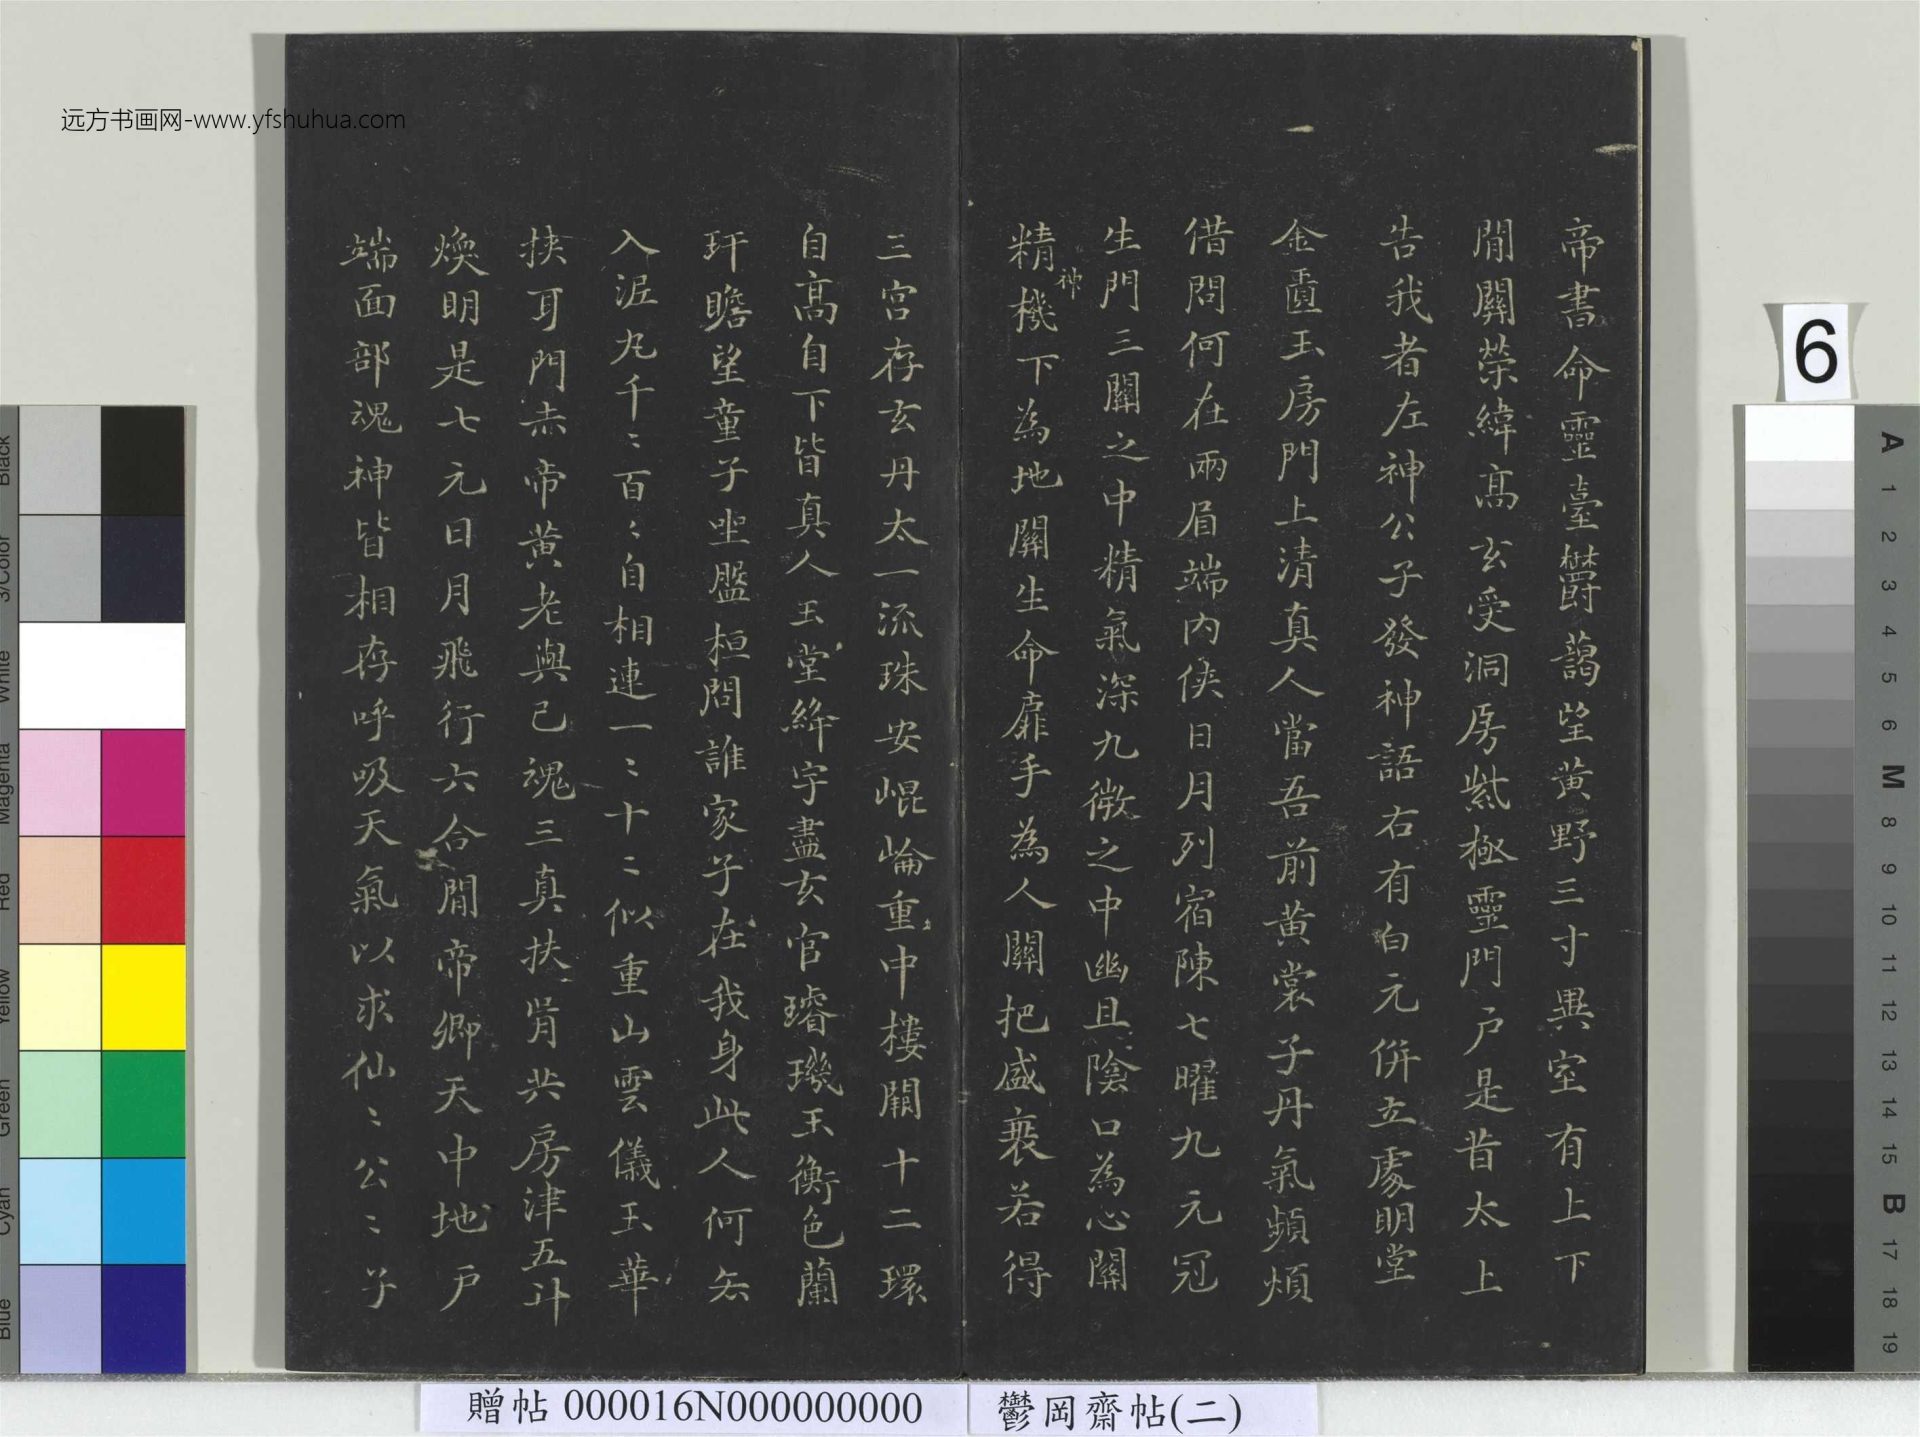 远方书画网-www.yfshuhua.com
帝書命靈臺欝藹望黄野三寸異室有上下
閒關榮緯髙玄受洞房紫極靈門戶是昔太上
告我者左神公子發神語右有白元併立處明堂
金匱玉房門上清真人當吾前黄裳子丹氣頻煩
借問何在兩眉端内侠日月列宿陳七曜九元冠
生門三關之中精氣深九微之中幽且陰口為心關
精神機下為地關生命扉手為人關把盛衰若得
三宮存玄丹太一流珠安崐崘重〻中樓闕十二環
自髙自下皆真人玉堂絳宇盡玄官璿璣玉衡色蘭
玕瞻望童子坐盤桓問誰家子在我身此人何去
入泥丸千〻百〻自相連一〻十〻似重山雲儀玉華
挟耳門赤帝黄老與己魂三真扶胥共房津五斗
煥明是七元日月飛行六合閒帝鄉天中地户
端面部魂神皆相存呼吸天氣以求仙〻公〻子
6
贈帖 000016N000000000
鬱岡齋帖(二)
Black
3/Color
White
Magenta
Red
Yellow
Green
Cyan
Blue
A
1
2
3
4
5
6
M
8
9
10
11
12
13
14
15
B
17
18
19